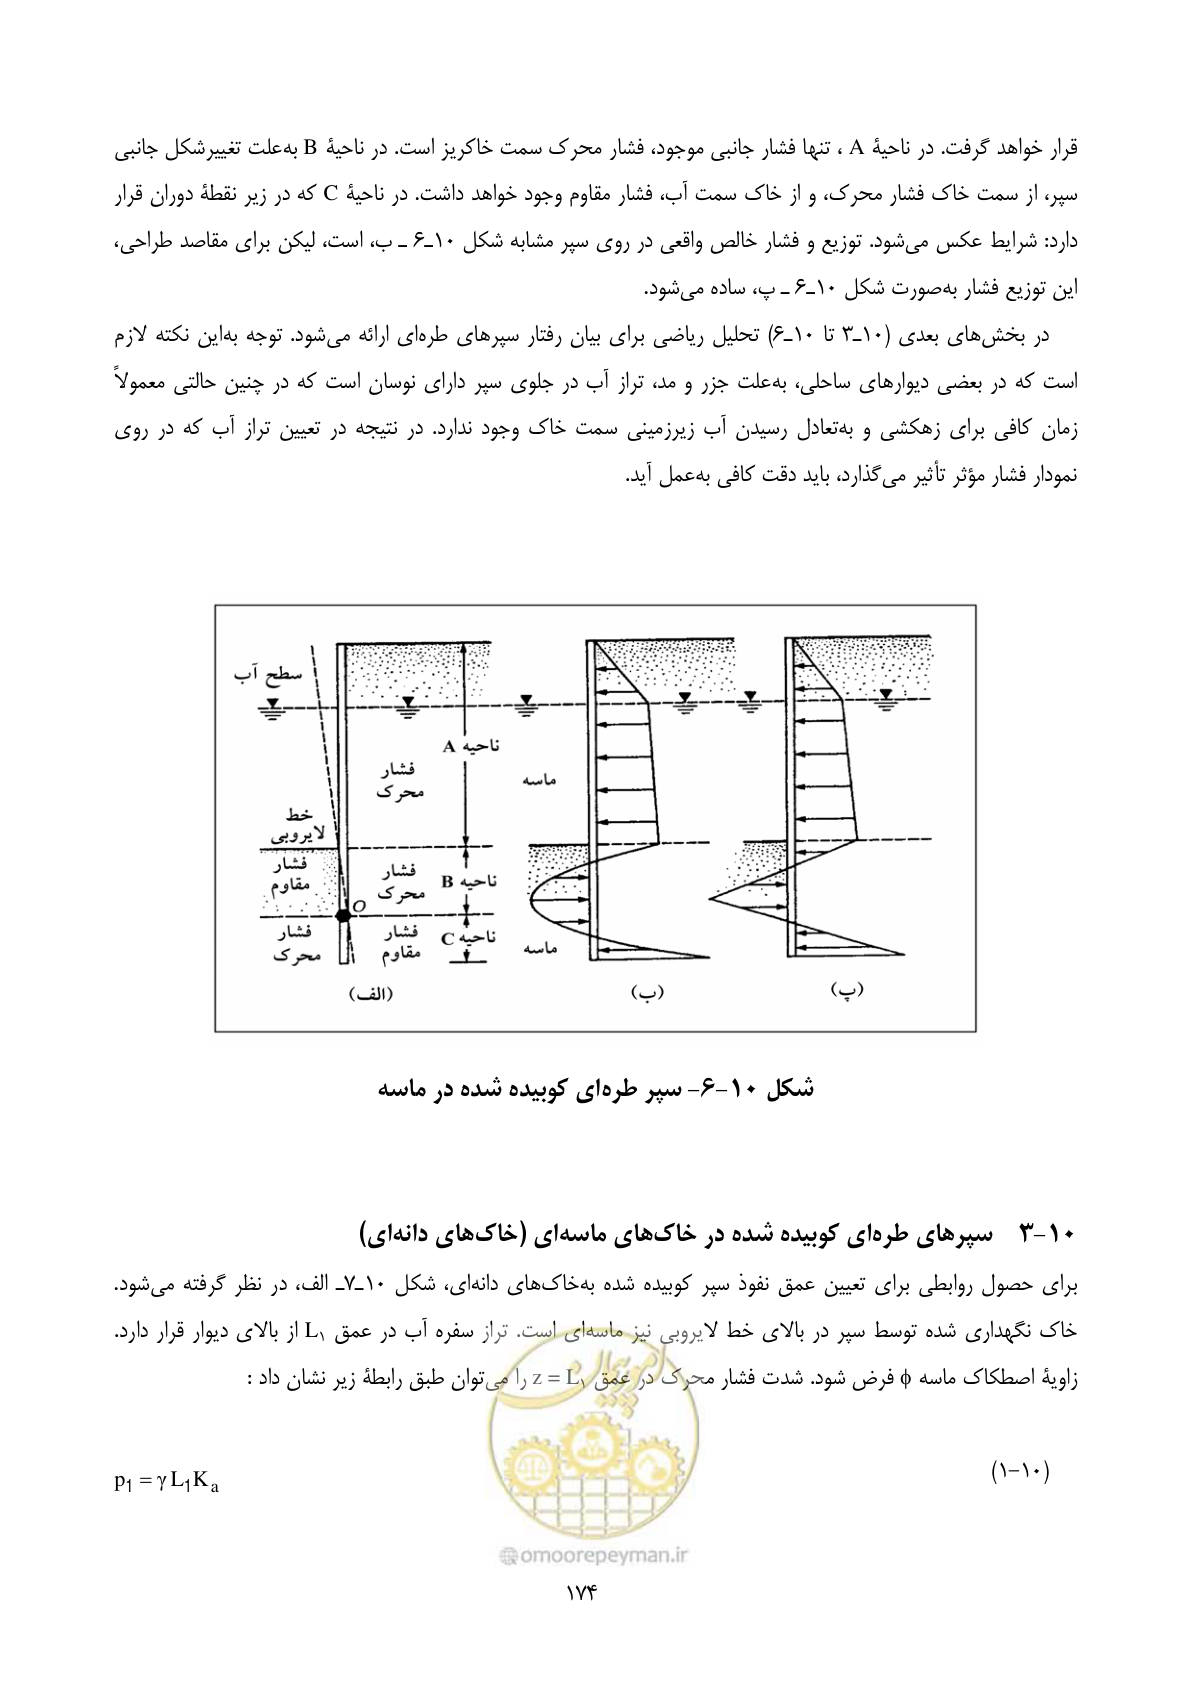 قرار خواهد گرفت. در ناحیهٔ A ، تنها فشار جانبی موجود، فشار محرک سمت خاکریز است. در ناحیهٔ B به‌علت تغییرشکل جانبی
سپر، از سمت خاک فشار محرک، و از خاک سمت آب، فشار مقاوم وجود خواهد داشت. در ناحیهٔ C که در زیر نقطهٔ دوران قرار
دارد: شرایط عکس می‌شود. توزیع و فشار خالص واقعی در روی سپر مشابه شکل ۱۰ـ۶ ـ ب، است، لیکن برای مقاصد طراحی،
این توزیع فشار به‌صورت شکل ۱۰ـ۶ ـ پ، ساده می‌شود.
در بخش‌های بعدی (۱۰ـ۳ تا ۱۰ـ۶) تحلیل ریاضی برای بیان رفتار سپرهای طره‌ای ارائه می‌شود. توجه به‌این نکته لازم
است که در بعضی دیوارهای ساحلی، به‌علت جزر و مد، تراز آب در جلوی سپر دارای نوسان است که در چنین حالتی معمولاً
زمان کافی برای زهکشی و به‌تعادل رسیدن آب زیرزمینی سمت خاک وجود ندارد. در نتیجه در تعیین تراز آب که در روی
نمودار فشار مؤثر تأثیر می‌گذارد، باید دقت کافی به‌عمل آید.
سطح آب
ناحیه A
فشار
محرک
ماسه
خط
لایروبی
فشار
مقاوم
فشار
محرک
ناحیه B
O
فشار
محرک
فشار
مقاوم
ناحیه C
ماسه
(الف)
(ب)
(پ)
شکل ۱۰-۶- سپر طره‌ای کوبیده شده در ماسه
۱۰-۳ سپرهای طره‌ای کوبیده شده در خاک‌های ماسه‌ای (خاک‌های دانه‌ای)
برای حصول روابطی برای تعیین عمق نفوذ سپر کوبیده شده به‌خاک‌های دانه‌ای، شکل ۱۰ـ۷ـ الف، در نظر گرفته می‌شود.
خاک نگهداری شده توسط سپر در بالای خط لایروبی نیز ماسه‌ای است. تراز سفره آب در عمق L۱ از بالای دیوار قرار دارد.
زاویهٔ اصطکاک ماسه ϕ فرض شود. شدت فشار محرک در عمق z = L۱ را می‌توان طبق رابطهٔ زیر نشان داد :
(۱۰-۱)
p₁ = γ L₁Kₐ
امور پیمان
@omoorepeyman.ir
۱۷۴